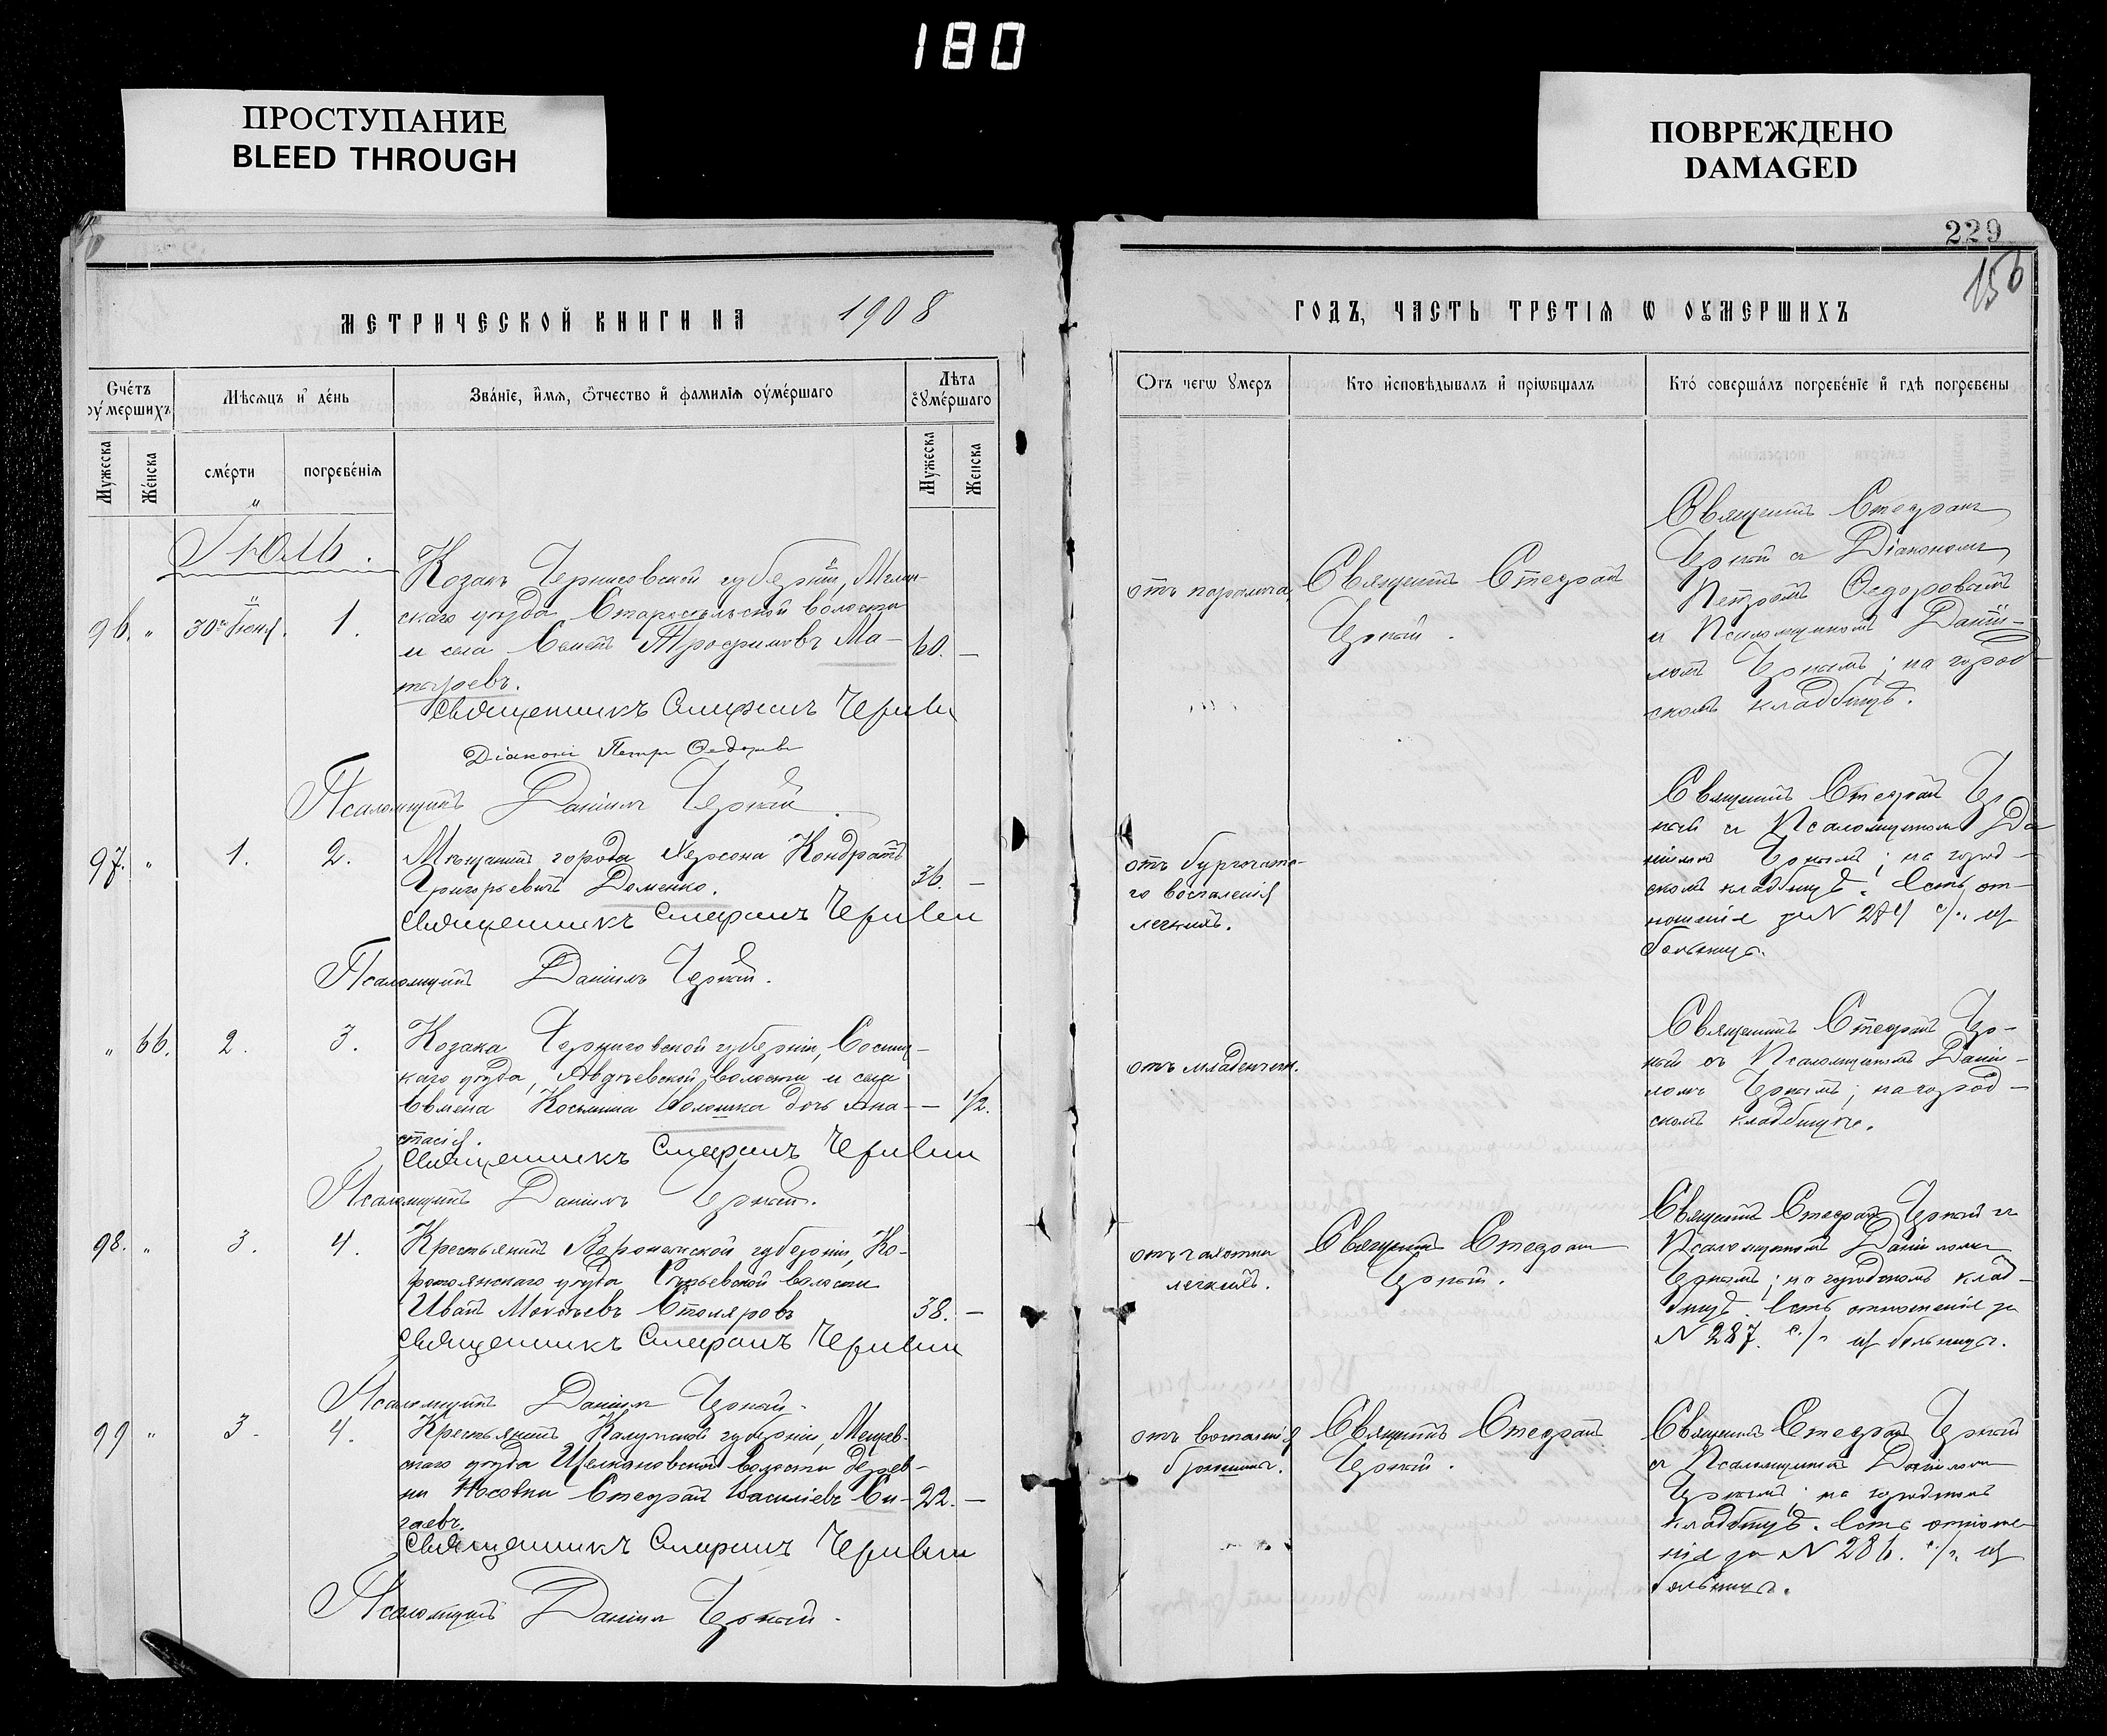 180
ПРОСТУПАНИЕ
BLEED THROUGH
ПОВРЕЖДЕНО
DAMAGED
229
156
МЕТРИЧЕСКОЙ КНИГИ НА 1908
ГОДЪ, ЧАСТЬ ТРЕТІѦ Ѡ ОУМЕРШИХЪ
Счéтъ оу́мершихъ
Мѣсѧцъ и дéнь
Звáніе, и́мѧ, ѻ́тчество и҆ фамиліѧ оумéршаго
Лѣта оумéршаго
Мужеска
Жéнска
смéрти
погребéніѧ
Мужеска
Женска
Ѿтъ чегѡ умеръ
Кто и҆сповѣдывалъ и҆ прїѡбщалъ
Ктó совершáлъ погребéніе и҆ гдѣ погребены
Іюль.
96. " 30го Іюня. 1.
Козакъ Черниговской губерніи, Мглин-
скаго уѣзда Старосельской волости
и села Трофимовъ Ма- 60. —
таревъ.
Священникъ Стефанъ Черный
Діаконъ Петръ Федоровъ
Псаломщикъ Даніилъ Черный
отъ паралича
Священникъ Стефанъ
Черный.
Священникъ Стефанъ
Черный съ Діакономъ
Петромъ Федоровымъ
и Псаломщикомъ Даніи-
ломъ Чернымъ; на город-
скомъ кладбищѣ.
97. " 1. 2.
Мѣщанинъ города Херсона Кондратъ
Григорьевичъ Доменко. 36. —
Священникъ Стефанъ Черный
Псаломщикъ Даніилъ Черный.
отъ бугорчата-
го воспаленія
легкихъ.
Священникъ Стефанъ Чер
ный и Псаломщикомъ Да
ніиломъ Чернымъ; на город-
скомъ кладбищѣ. Есть от-
ношеніе за № 284 с/г. изъ
больницы.
" 66. 2. 3.
Козака Черниговской губерніи, Сосниц-
каго уѣзда, Авдѣевской волости и села
Косьмина Волошка дочь Ана- — 1/2.
стасія.
Священникъ Стефанъ Черный
Псаломщикъ Даніилъ Черный.
отъ младенчес.
Священникъ Стефанъ Чер-
ный съ Псаломщикомъ Даніи-
ломъ Чернымъ; на город-
скомъ кладбищѣ.
98. " 3. 4.
Крестьянинъ Воронежской губерніи, Ко-
ротоякскаго уѣзда волости
Иванъ Столяровъ 38. —
Священникъ Стефанъ Черный
Псаломщикъ Даніилъ Черный.
отъ чахотки
легкихъ.
Священникъ Стефанъ
Черный.
Священникъ Стефанъ Черный и
Псаломщикомъ Даніиломъ
Чернымъ; на городскомъ клад-
бищѣ. Есть отношеніе за
№ 287. с./г. изъ больницы.
99 " 3. 4.
Крестьянинъ Калужской губерніи, Мещев-
скаго уѣзда волости дерев-
ни Носовки Стефанъ Василіевъ Си- 22. —
гаевъ.
Священникъ Стефанъ Черный
Псаломщикъ Даніилъ Черный.
отъ воспаленія
брюшины.
Священникъ Стефанъ
Черный.
Священникъ Стефанъ Черный
и Псаломщикомъ Даніиломъ
Чернымъ; на городскомъ
кладбищѣ. Есть отноше
ніе за № 286. с./г. изъ
больницы.